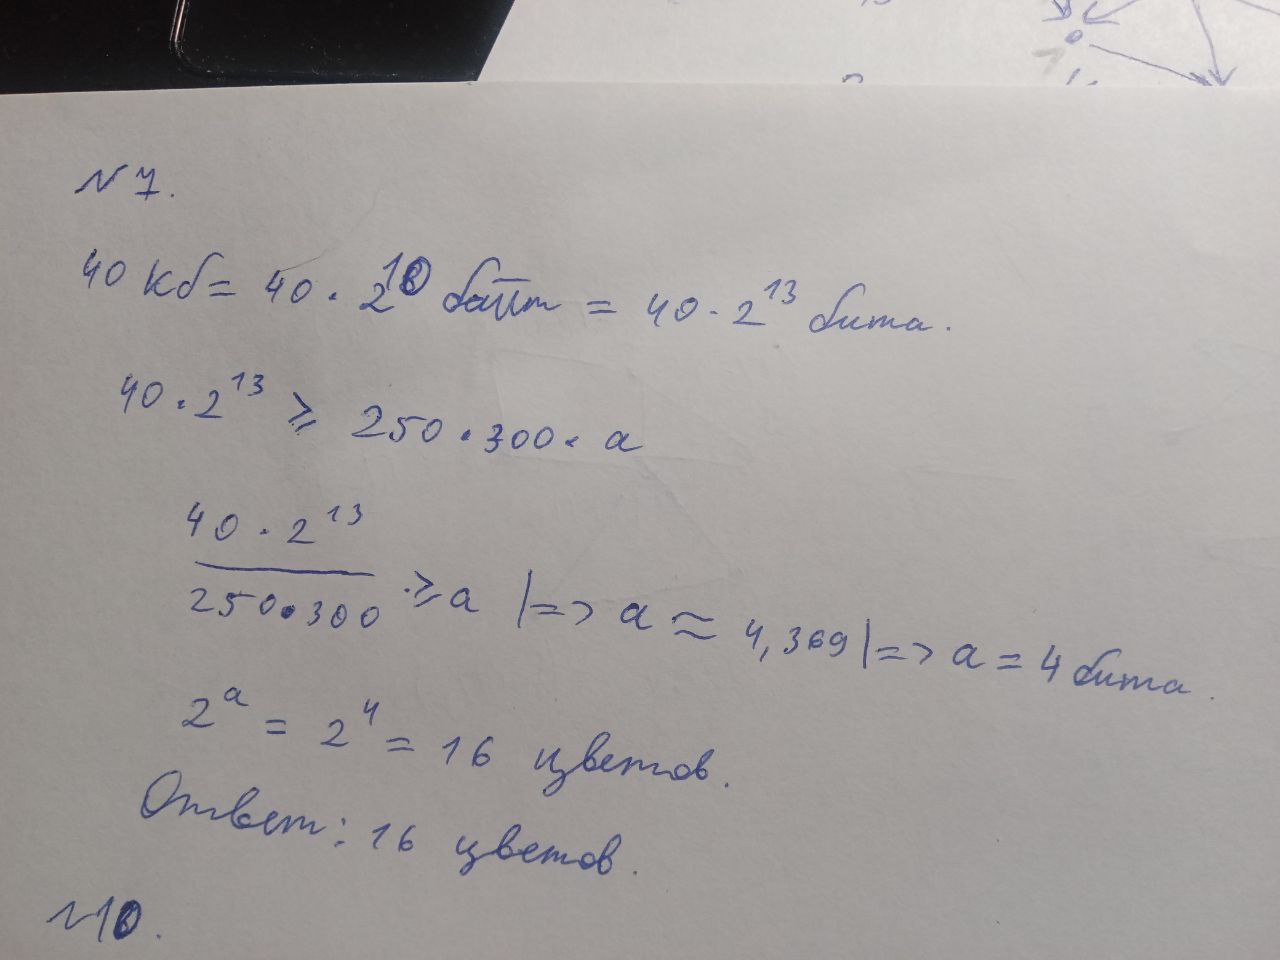 № 7.
40 Кб = 40 · 2^10 байт = 40 · 2^13 бита.
40 · 2^13 ⩾ 250 · 300 · a
40 · 2^13 / 250 · 300 ⩾ a |=> a ≈ 4,369 |=> a = 4 бита.
2^a = 2^4 = 16 цветов.
Ответ: 16 цветов.
№10.